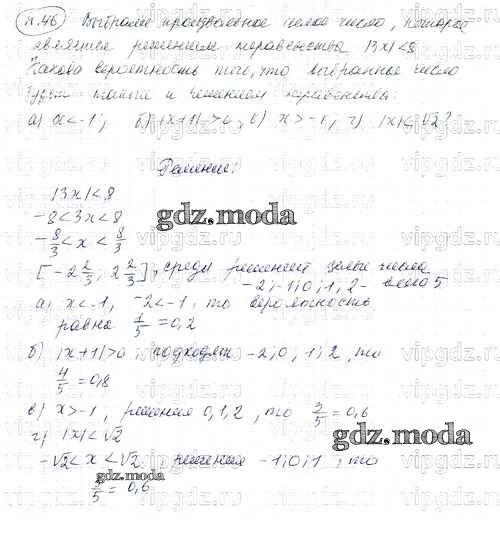 n.46 Выбрали произвольное целое число, которое
является решением неравенства |3x|<8
Какова вероятность того, что выбранное число
будет также и решением неравенства:
а) x<-1; б) |x+1|>0; в) x>-1; г) |x|<√2?
Решение:
|3x|<8
-8<3x<8
-8/3<x<8/3
gdz.moda
[-2 2/3; 2 2/3], среди решений целые числа
-2; -1; 0; 1; 2 - всего 5
а) x<-1, -2<-1, то вероятность
равна 1/5 = 0,2
б) |x+1|>0 подходят -2; 0; 1; 2, то
4/5 = 0,8
gdz.moda
в) x>-1, решения 0, 1, 2, то 3/5 = 0,6
г) |x|<√2
gdz.moda
-√2<x<√2, решения -1; 0; 1, то
gdz.moda
3/5 = 0,6
vipgdz.ru